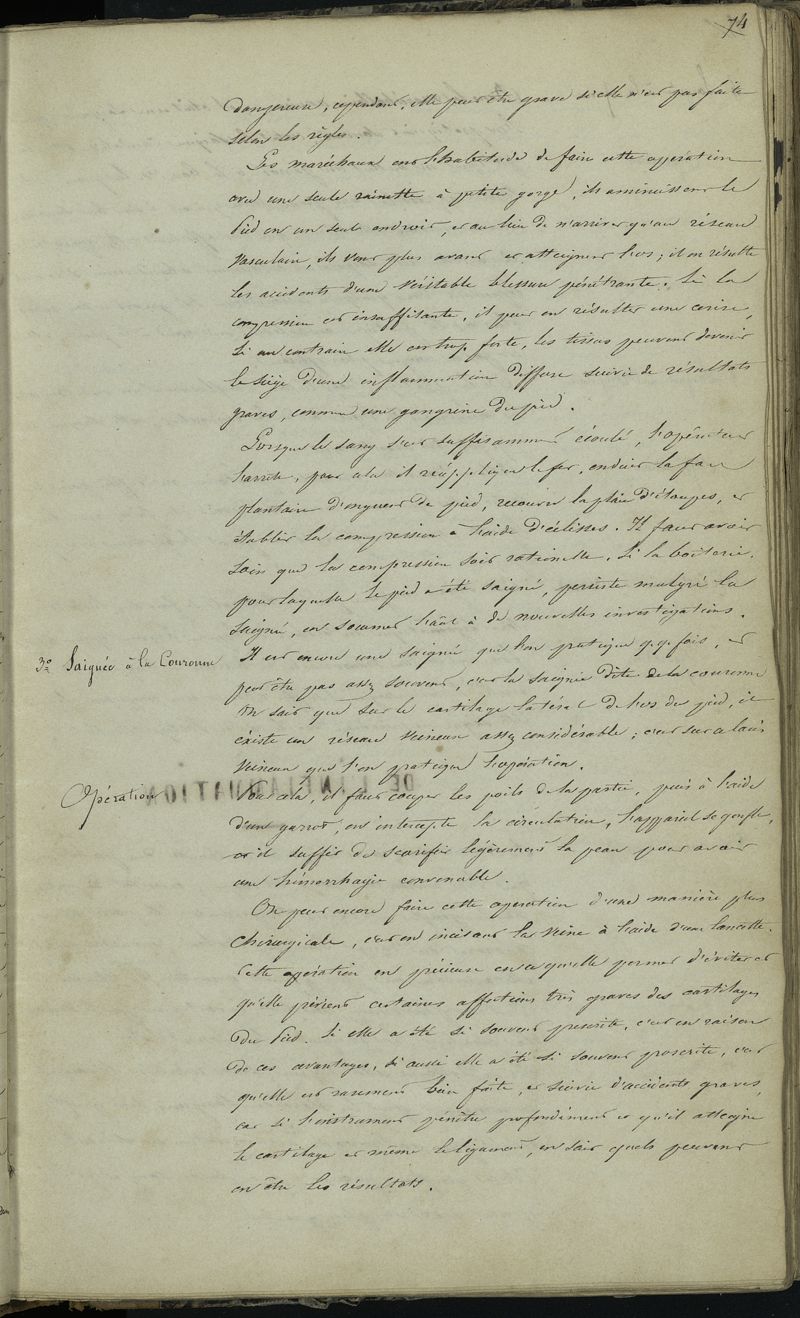 74
dangereuse, cependant, elle peut être grave si elle n'est pas faite
selon les règles.
Les maréchaux ont l'habitude de faire cette opération
avec une seule rainette à petite gorge, ils amincissent le
Pied en un seul endroit, et au lieu de n'arriver qu'au réseau
vasculaire, ils vont plus avant et atteignent l'os; il en résulte
les accidents d'une véritable blessure pénétrante. Si la
compression est insuffisante, il peut en résulter une cerise,
si au contraire elle est trop forte, les tissus peuvent devenir
le siège d'une inflammation diffuse suivie de résultats
graves, comme une gangrène du pied.
Lorsque le sang s'est suffisamment écoulé, l'opérateur
l'arrête, pour cela il réapplique le fer, enduit la face
plantaire d'onguent de pied, recouvre la plaie d'étoupes, et
établit la compression à l'aide d'éclisses. Il faut avoir
soin que la compression soit rationnelle. Si la boiterie
pour laquelle le pied a été saigné, persiste malgré la
saignée, on soumet à de nouvelles investigations.
3° Saignée à la Couronne
Il est encore une saignée que l'on pratique q.q. fois, et
peut être pas assez souvent, c'est la saignée dite de la couronne
On sait que sur le cartilage latéral de l'os du pied, il
existe un réseau veineux assez considérable; c'est sur ce lacis
veineux que l'on pratique l'opération.
Opération
Pour cela, il faut couper les poils de la partie, puis à l'aide
d'un garrot, on intercepte la circulation, l'appareil se gonfle,
et il suffit de scarifier légèrement la peau pour avoir
une hémorrhagie convenable.
On peut encore faire cette opération d'une manière plus
chirurgicale, c'est en incisant la veine à l'aide d'une lancette.
Cette opération est précieuse en ce qu'elle permet d'éviter et
qu'elle prévient certaines affections très graves des cartilages
du Pied. Si elle a été si souvent prescrite, c'est en raison
de ces avantages, si aussi elle a été si souvent proscrite, c'est
qu'elle est rarement bien faite, et suivie d'accidents graves,
car si l'instrument pénètre profondément et qu'il atteigne
le cartilage et même le ligament, on sait quels peuvent
en être les résultats.